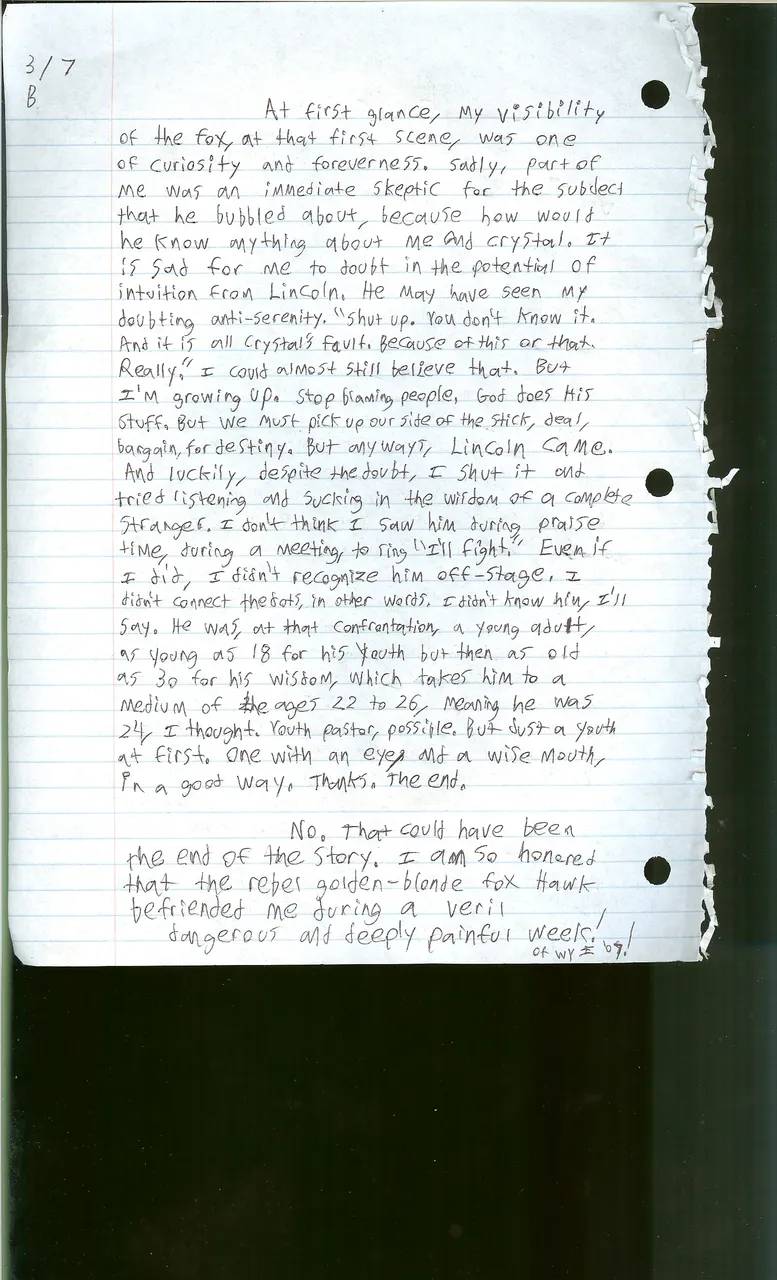 3/7
B
At first glance, my visibility
of the fox, at that first scene, was one
of curiosity and foreverness. Sadly, part of
me was an immediate skeptic for the subject
that he bubbled about, because how would
he know anything about me and crystal. It
is sad for me to doubt in the potential of
intuition from Lincoln. He may have seen my
doubting anti-serenity. "Shut up. You don't know it.
And it is all Crystal's fault. Because of this or that.
Really." I could almost still believe that. But
I'm growing up. Stop blaming people, God does His
stuff. But we must pick up our side of the stick, deal,
bargain, for destiny. But anyways, Lincoln came.
And luckily, despite the doubt, I shut it and
tried listening and sucking in the wisdom of a complete
stranger. I don't think I saw him during praise
time, during a meeting, to sing "I'll fight." Even if
I did, I didn't recognize him off-stage. I
didn't connect the dots, in other words. I didn't know him, I'll
say. He was, at that confrontation, a young adult,
as young as 18 for his youth but then as old
as 30 for his wisdom, which takes him to a
medium of the ages 22 to 26, meaning he was
24, I thought. Youth pastor, possible. But Just a youth
at first. One with an eye, and a wise mouth,
in a good way. Thanks. The end.
No. That could have been
the end of the story. I am so honored
that the rebel golden-blonde fox Hawk
befriended me during a veril
dangerous and deeply painful week!
of